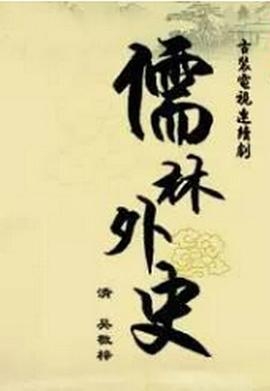 古装電視連續劇
儒林外史
清 吴敬梓